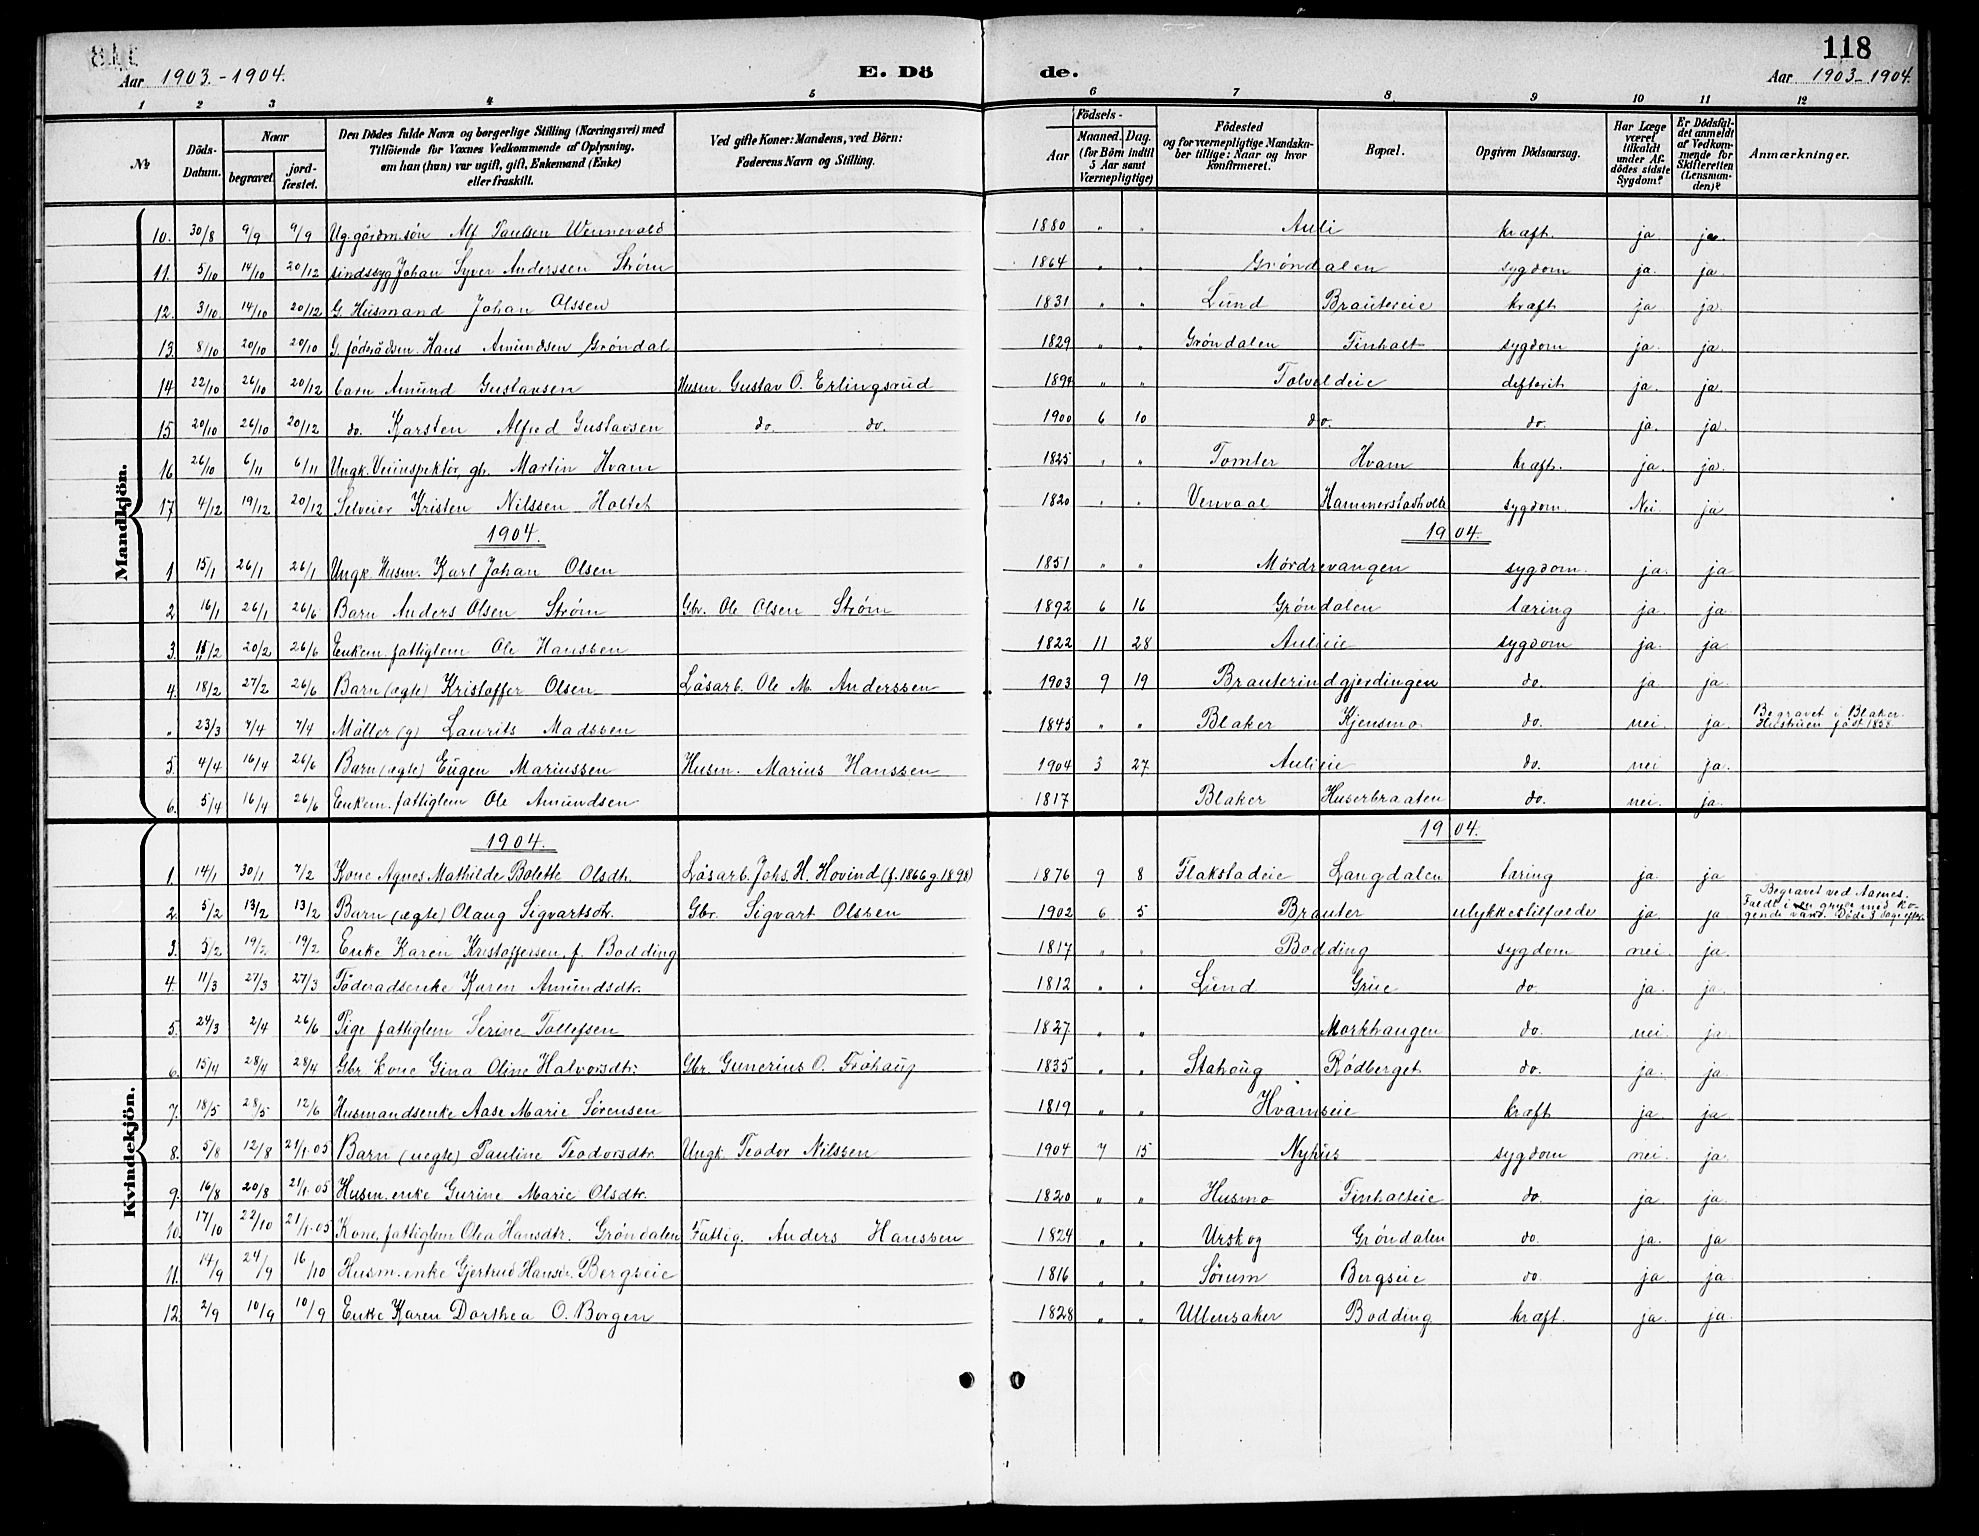 118
Aar 1903.-1904. E. Dö de. Aar 1903-1904.
1 2 3 4 5 6 7 8. 9 10 11 12
№ Döds-Datum. Naar begravet. jord-fæstet. Den Dödes fulde Navn og borgerlige Stilling (Næringsvei) med Tilföiende for Voxnes Vedkommende af Oplysning, om han (hun) var ugift, gift, Enkemand (Enke) eller fraskilt. Ved gifte Koner: Mandens, ved Börn: Faderens Navn og Stilling. Födsels- Aar Maaned. Dag. (for Börn indtil 5 Aar samt Værnepligtige) Födested og for værnepligtige Mandskaber tillige: Naar og hvor konfirmeret. Bopæl. Opgiven Dödsaarsag. Har Læge været tilkaldt under Afdödes sidste Sygdom? Er Dödsfaldet anmeldt af Vedkommende for Skifteretten (Lensmanden)? Anmærkninger.
Mandkjön.
10. 30/8 9/9 9/9 Ug. gårdm. søn Alf Paulsen Wennevold 1880 " " Auli kræft. ja ja.
11. 5/10 14/10 20/12 sindssyg Johan Syver Anderssen Strøm 1864 " " Grøndalen sygdom ja. ja.
12. 3/10 14/10 20/12 G. Husmand Johan Olssen 1831 " " Lund Brautereie kræft ja ja.
13. 8/10 20/10 20/10 G. fødrådsm. Hans Amundsen Grøndal 1829 " " Grøndalen Finholt sygdom ja. ja.
14 22/10 26/10 20/12 barn Amund Gustavsen Husm. Gustav O. Erlingsrud 1894 " " Tolvoldeie defterit ja. ja.
15 20/10 26/10 20/12 do. Karsten Alfred Gustavsen do. do. 1900 6 10 do. do. ja. ja.
16 26/10 6/11 6/11 Ungk. Veiinspektør, gbr. Martin Hvam 1825 " " Tomter Hvam kræft. ja. ja.
17. 4/12 19/12 20/12 Selveier Kristen Nilssen Holtet 1820 " " Venvaal Hammerstadholt sygdom. Nei ja
1904. 1904.
1 15/1 26/1 26/1 Ungk. Husm. Karl Johan Olsen 1851 " " Mørdrevangen sygdom. ja. ja
2 16/1 26/1 26/6 Barn Anders Olsen Strøm Gbr. Ole Olsen Strøm 1892 6 16 Grøndalen tæring ja. ja.
3. 15/2 20/2 26/6 Enkem. fattiglem Ole Hanssen 1822 11 28 Aulieie sygdom ja. ja
4. 18/2 27/2 26/6 Barn (ægte) Kristoffer Olsen Løsarb. Ole M. Anderssen 1903 9 19 Brauterindgjerdingen do. ja ja.
" 23/3 7/4 7/4 Møller (g) Laurits Madssen 1845 " " Blaker Kjensmo do. nei. ja. Begravet i Blaker. Hustruen født 1838
5. 4/4 16/4 26/6 Barn (ægte) Eugen Mariussen Husm. Marius Hanssen 1904 3 27 Aulieie do. nei ja.
6. 5/4 16/4 26/6 Enkem. fattiglem Ole Amundsen 1817 Blaker Huserbraaten do. nei. ja.
Kvindekjön.
1904. 1904.
1. 14/1 30/1 7/2 Kone Agnes Mathilde Bolette Olsdtr. Løsarb. Johs. H. Hovind (f. 1866 g 1898) 1876 9 8 Flakstadeie Langdalen tæring ja. ja
2. 5/2 13/2 13/2 Barn (ægte) Olaug Sigvartsdtr. Gbr. Sigvart Olssen 1902 6 5 Brauter ulykkestilfælde ja. ja Begravet ved Aarnes. Faldt i en gryte med kogende vand. Døde 3 dage efter.
3. 5/2 19/2 19/2 Enke Karen Kristoffersen, f. Bodding 1817 " " Bodding sygdom nei. ja.
4. 11/3 27/3 27/3 Föderadsenke Karen Amundsdtr. 1812 " " Lund Grue do. ja. ja.
5. 24/3 2/4 26/6 Pige fattiglem Serine Tollefsen 1827 " " Morkhaugen do. nei. ja
6. 15/4 28/4 28/4 Gbr. kone Gina Oline Halvorsdtr. Gbr. Gunerius O. Frøhaug 1835 " " Stahaug Rødberget do. ja. ja.
7. 18/5 28/5 12/6 Husmandsenke Aase Marie Sørensen 1819 " " Hvamseie kræft ja ja.
8. 5/8 12/8 21/1.05 Barn (uegte) Pauline Teodorsdtr. Ungk. Teodor Nilssen 1904 7 15 Nyhus sygdom nei. ja.
9. 16/8 20/8 21/1.05 Husm. enke Gurine Marie Olsdtr. 1820 " " Husmo Finholteie do. ja ja.
10. 17/10 22/10 21/1.05 Kone, fattiglem Olea Hansdtr. Grøndalen Fattig. Anders Hanssen 1824 " " Urskog Grøndalen do. ja. ja
11. 14/9 24/9 16/10 Husm. enke Gjertrud Hansdr. Bergseie 1816 " " Sørum Bergseie do ja ja.
12. 2/9 10/9 10/9 Enke Karen Dorthea O. Borgen 1828 " " Ullensaker Bodding kræft. ja. ja.